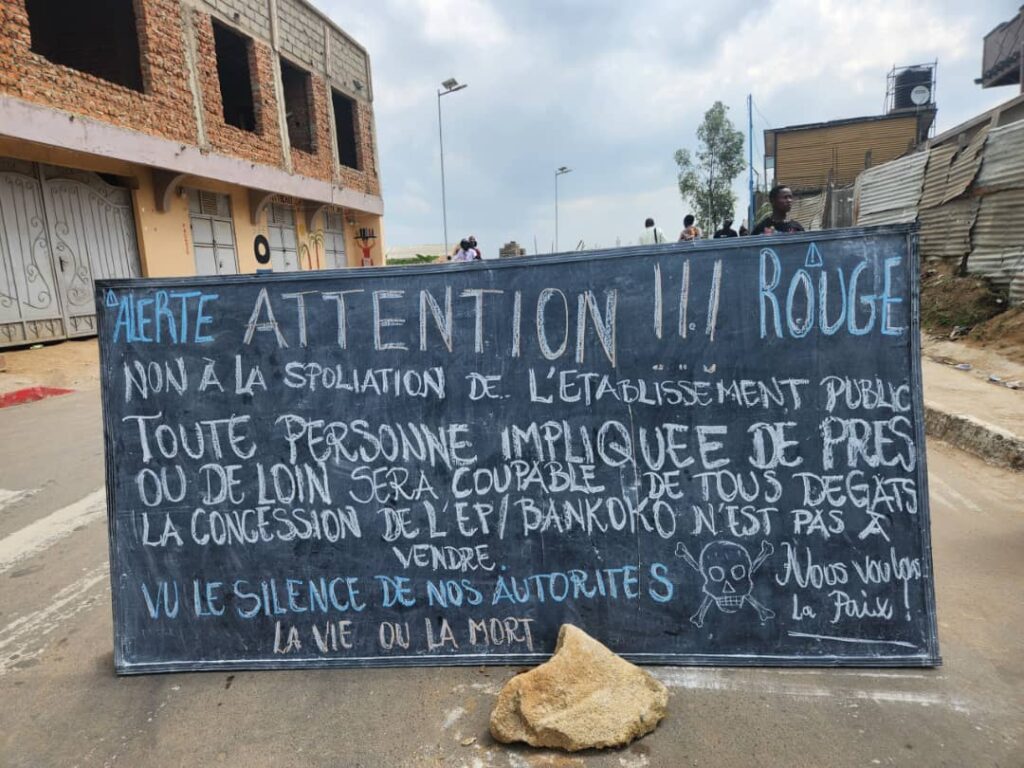 ALERTE ATTENTION !!! ROUGE
NON À LA SPOLIATION DE L'ETABLISSEMENT PUBLIC
TOUTE PERSONNE IMPLIQUEE DE PRES
OU DE LOIN SERA COUPABLE DE TOUS DEGATS
LA CONCESSION DE L'EP/BANKOKO N'EST PAS À
VENDRE.
VU LE SILENCE DE NOS AUTORITES
LA VIE OU LA MORT
Nous voulons
La Paix !